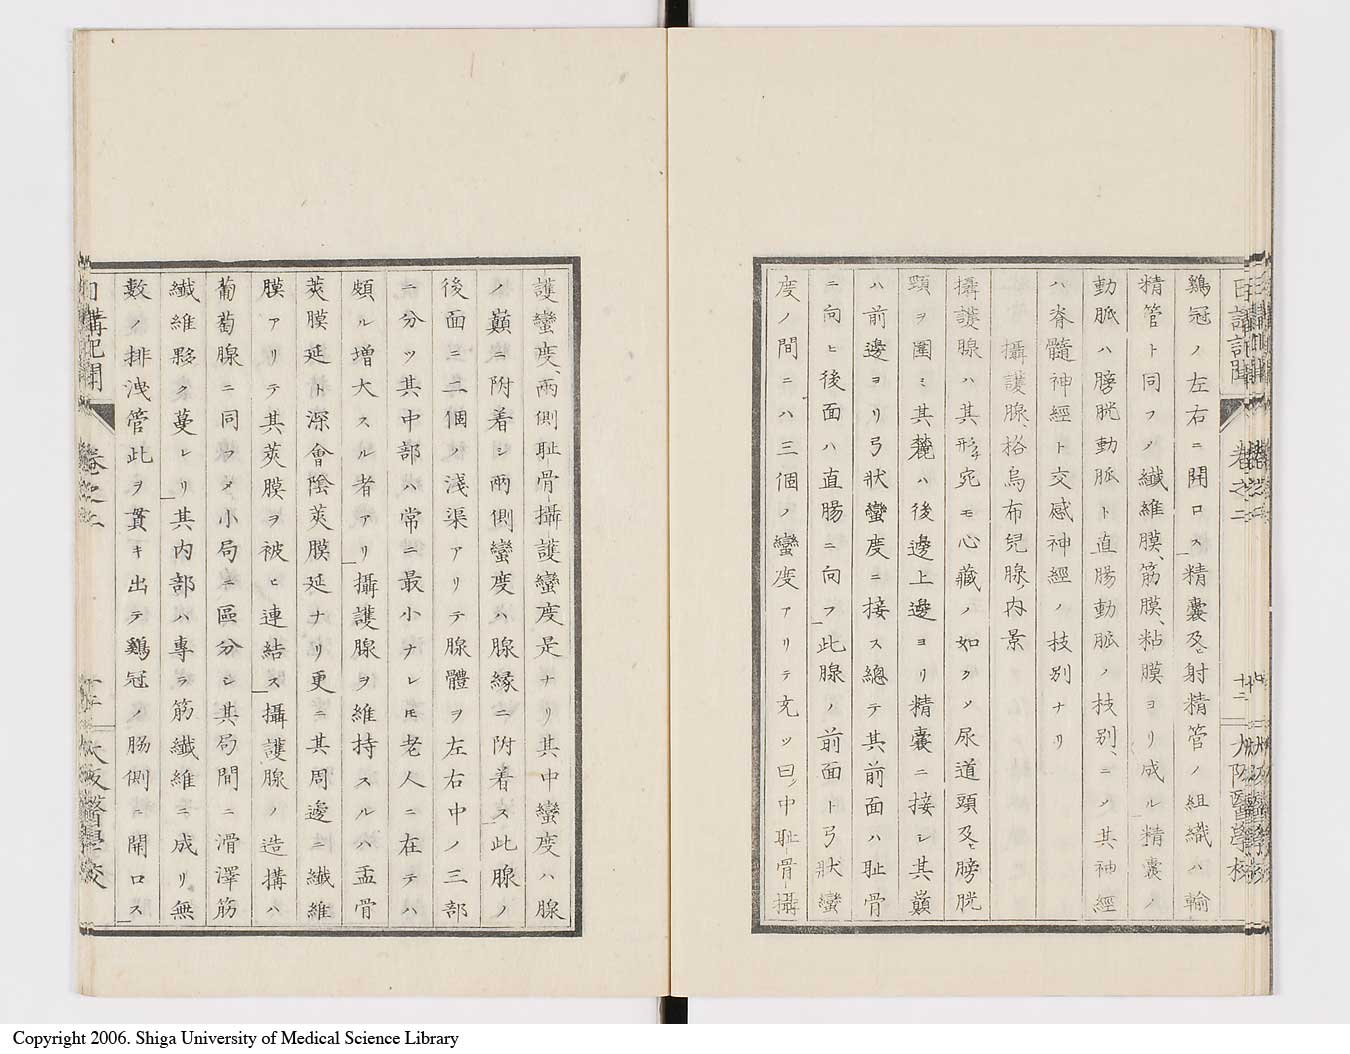 鷄冠ノ左右ニ開口ス精囊及ヒ射精管ノ組織ハ輸
精管ト同フメ纖維膜、筋膜、粘膜ヨリ成ル精囊ノ
動脈ハ膀胱動脈ト直腸動脈ノ枝別、ニメ其神經
ハ脊髓神經ト交感神經ノ枝別ナリ
攝護腺、格烏布兒腺、内景
攝護腺ハ其形宛モ心藏ノ如クメ尿道頭及ヒ膀胱
頸ヲ圍ミ其麓ハ後邊上邊ヨリ精囊ニ接レ其巓
ハ前邊ヨリ弓狀彎度ニ接ス總テ其前面ハ耻骨
ニ向ヒ後面ハ直腸ニ向フ此腺ノ前面ト弓狀彎
度ノ間ニハ三個ノ彎度アリテ充ツ曰ク中耻骨攝
護彎度、兩側耻骨攝護彎度是ナリ其中彎度ハ腺
ノ巓ニ附着シ兩側彎度ハ腺緣ニ附着ス此腺ノ
後面ニ二個ノ淺渠アリテ腺體ヲ左右中ノ三部
ニ分ツ其中部ハ常ニ最小ナレ𪜈老人ニ在テハ
頗ル增大スル者アリ攝護腺ヲ維持スルハ盂骨
莢膜延ト深會陰莢膜延ナリ更ニ其周邊ニ纖維
膜アリテ其莢膜ヲ被ヒ連結ス攝護腺ノ造搆ハ
葡萄腺ニ同フメ小局ニ區分シ其局間ニ滑澤筋
纖維夥ク蔓レリ其内部ハ專ラ筋纖維ニ成リ無
數ノ排洩管此ヲ貫キ出テ鷄冠ノ腸側ニ開口ス
日講記聞 卷之二 十二 大阪醫學校
Copyright 2006. Shiga University of Medical Science Library